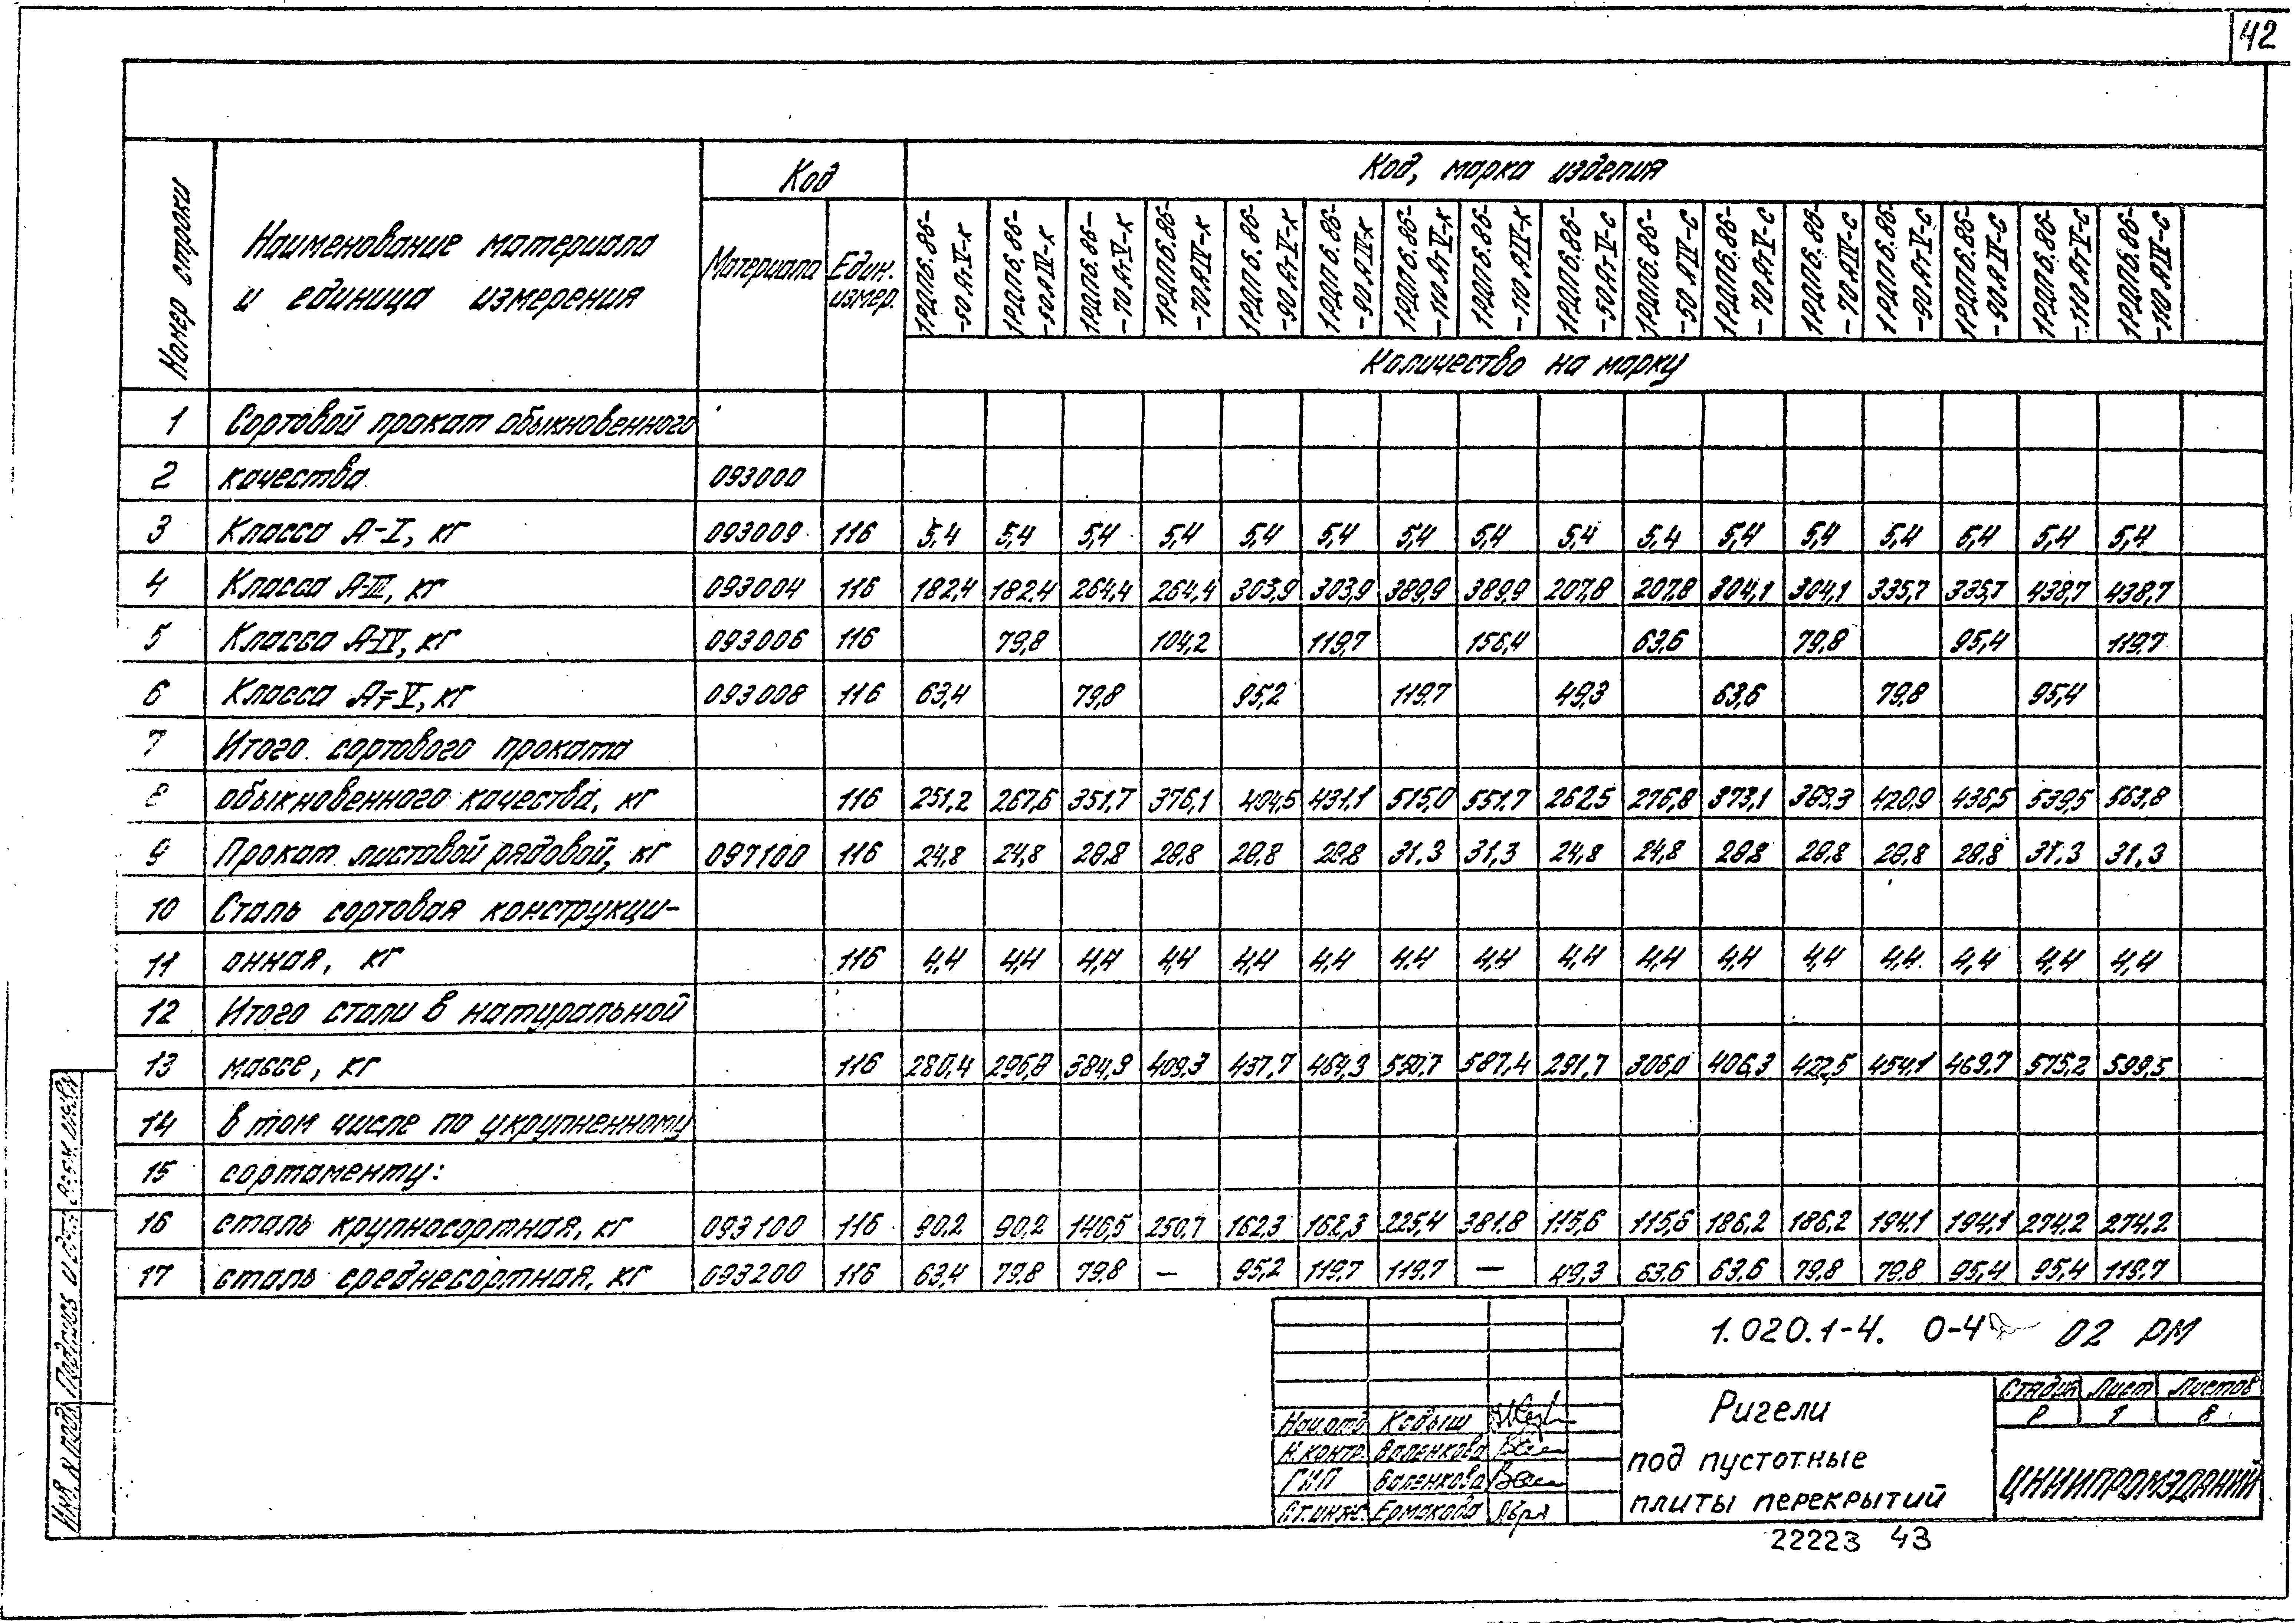 42
Номер строки
Наименование материала
и единица измерения
Код
Материала
Един.
измер.
Код, марка изделия
1РДП6.86-
-50АтV-к
1РДП6.86-
-50АIV-к
1РДП6.86-
-70АтV-к
1РДП6.86-
-70АIV-к
1РДП6.86-
-90АтV-к
1РДП6.86-
-90АIV-к
1РДП6.86-
-110АтV-к
1РДП6.86-
-110АIV-к
1РДП6.86-
-50АтV-с
1РДП6.86-
-50АIV-с
1РДП6.86-
-70АтV-с
1РДП6.86-
-70АIV-с
1РДП6.86-
-90АтV-с
1РДП6.86-
-90АIV-с
1РДП6.86-
-110АтV-с
1РДП6.86-
-110АIV-с
Количество на марку
1 Сортовой прокат обыкновенного
2 качества 093000
3 Класса А-I, кг 093009 116 5,4 5,4 5,4 5,4 5,4 5,4 5,4 5,4 5,4 5,4 5,4 5,4 5,4 5,4 5,4 5,4
4 Класса А-III, кг 093004 116 182,4 182,4 264,4 264,4 303,9 303,9 389,9 389,9 207,8 207,8 304,1 304,1 335,7 335,7 438,7 438,7
5 Класса А-IV, кг 093006 116 79,8 104,2 119,7 156,4 63,6 79,8 95,4 119,7
6 Класса Ат-V, кг 093008 116 63,4 79,8 95,2 119,7 49,3 63,6 79,8 95,4
7 Итого сортового проката
8 обыкновенного качества, кг 116 251,2 267,6 351,7 376,1 404,5 431,1 515,0 551,7 262,5 276,8 373,1 389,3 420,9 436,5 539,5 563,8
9 Прокат листовой рядовой, кг 097100 116 24,8 24,8 28,8 28,8 28,8 28,8 31,3 31,3 24,8 24,8 28,8 28,8 28,8 28,8 31,3 31,3
10 Сталь сортовая конструкци-
11 онная, кг 116 4,4 4,4 4,4 4,4 4,4 4,4 4,4 4,4 4,4 4,4 4,4 4,4 4,4 4,4 4,4 4,4
12 Итого стали в натуральной
13 массе, кг 116 280,4 296,8 384,9 409,3 437,7 464,3 550,7 587,4 291,7 306,0 406,3 422,5 454,1 469,7 575,2 599,5
14 в том числе по укрупненному
15 сортаменту:
16 сталь крупносортная, кг 093100 116 90,2 90,2 146,5 250,7 162,3 162,3 225,4 381,8 115,6 115,6 186,2 186,2 194,1 194,1 274,2 274,2
17 сталь среднесортная, кг 093200 116 63,4 79,8 79,8 — 95,2 119,7 119,7 — 49,3 63,6 63,6 79,8 79,8 95,4 95,4 119,7
1.020.1-4. 0-4 02 РМ
Ригели
под пустотные
плиты перекрытий
Стадия Лист Листов
Р 1 8
ЦНИИПРОМЗДАНИЙ
Нач.отд. Кодыш
Н.контр. Валенкова
ГИП Валенкова
Ст.инж. Ермакова
Инв. N подл. Подпись и дата Взам. инв.
22223 43